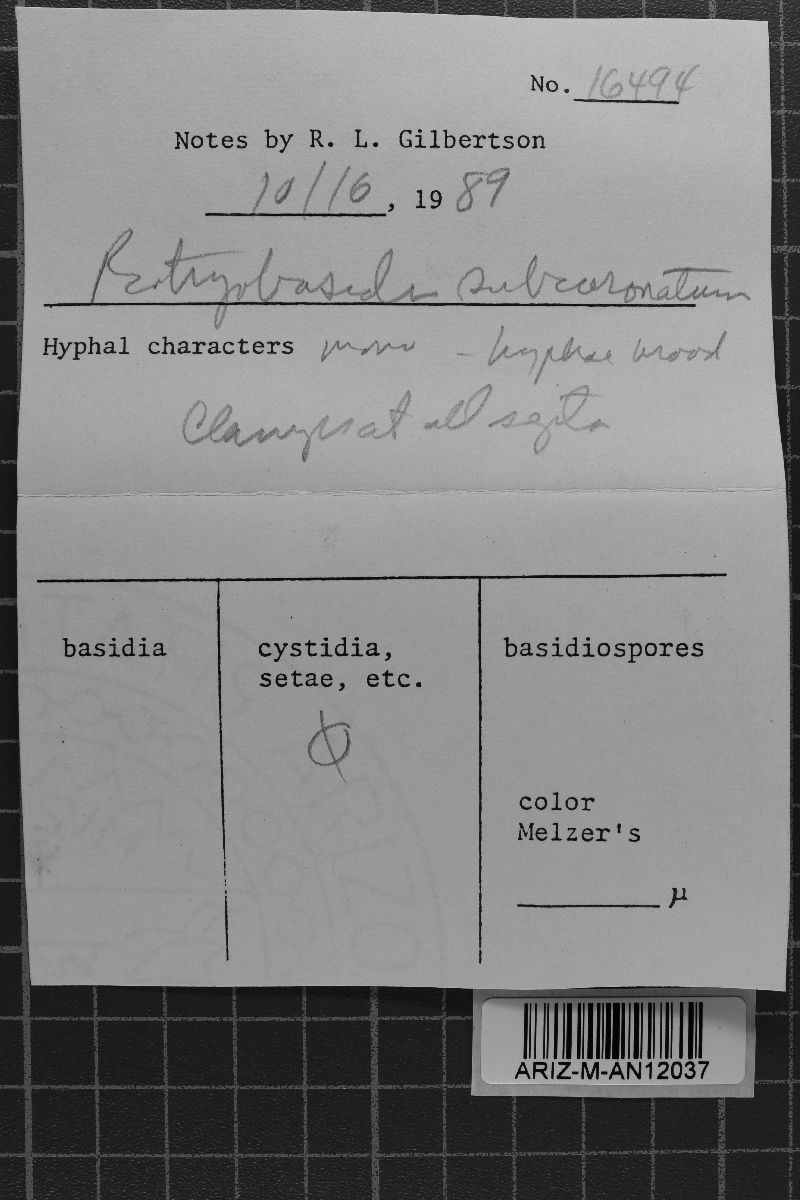 No. 16494
Notes by R. L. Gilbertson
10/16, 1989
Botryobasidium subcoronatum
Hyphal characters mono - hyphae broad
Clamps at all septa
basidia
cystidia,
setae, etc.
Φ
basidiospores
color
Melzer's
μ
ARIZ-M-AN12037